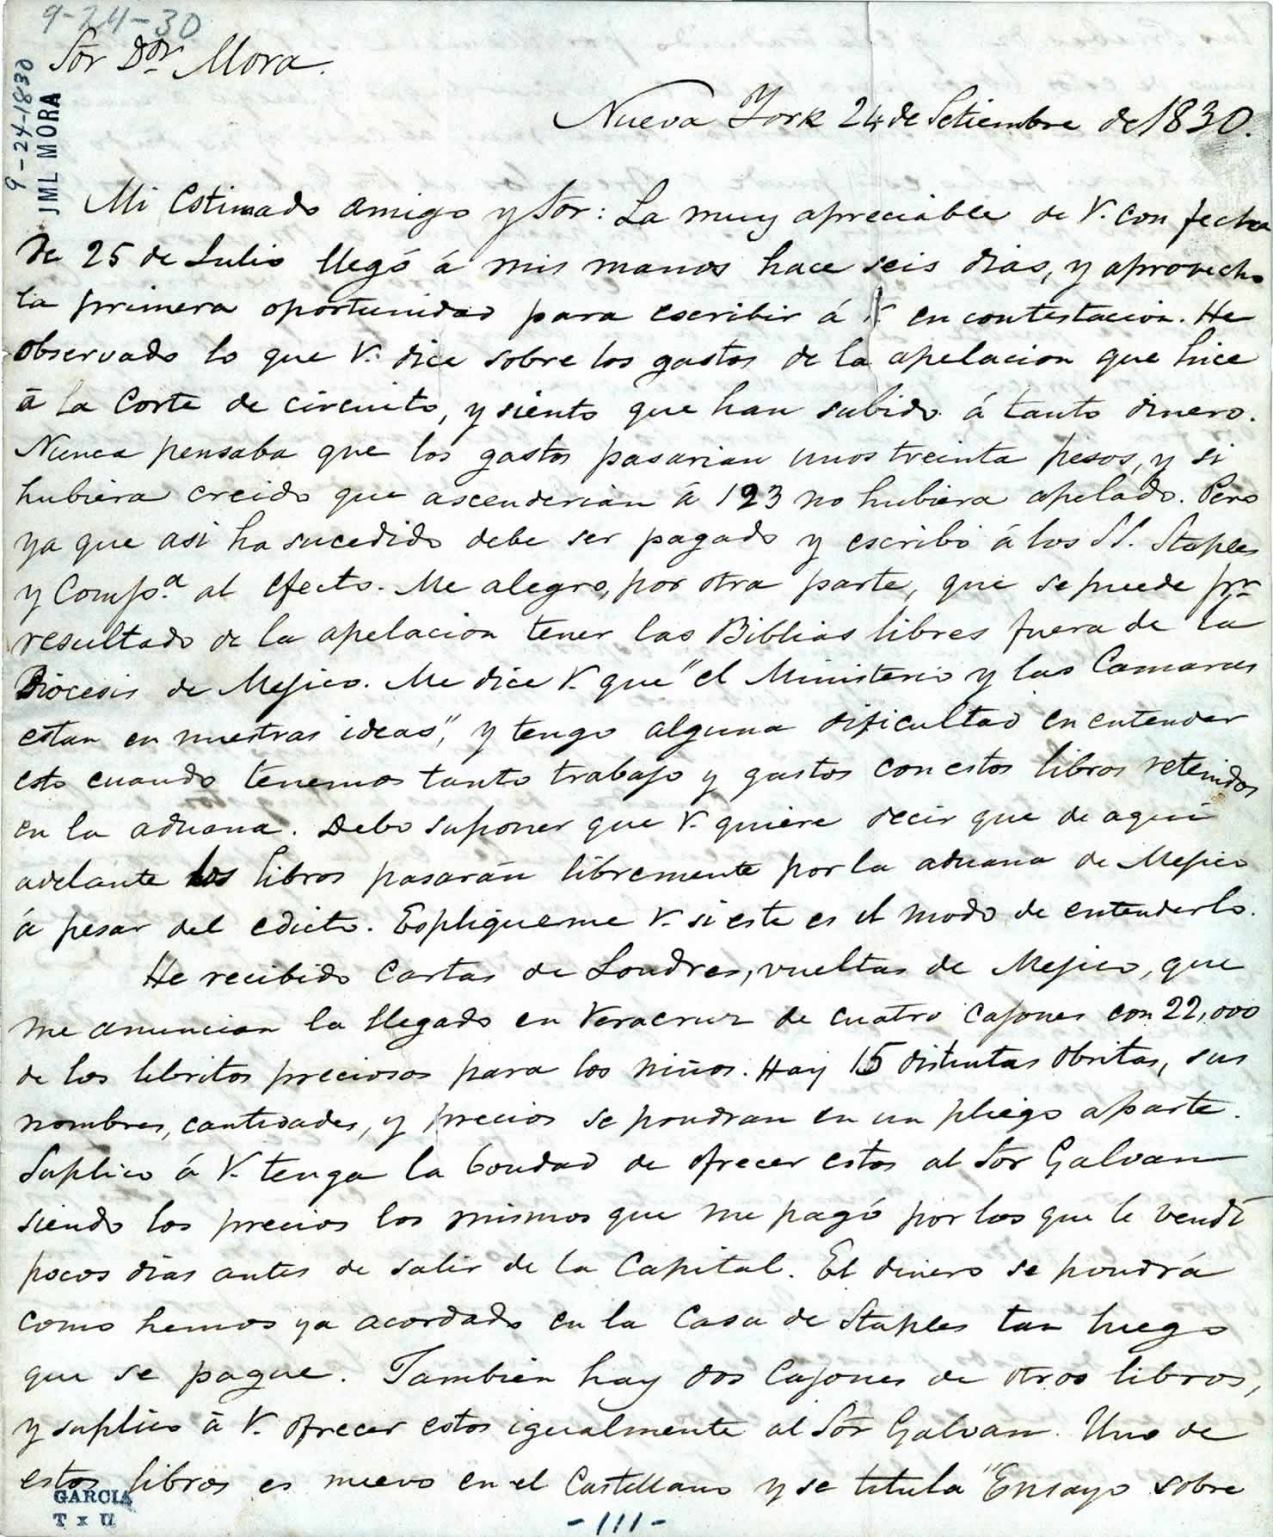 9-24-30
Sõr Dōr Mora.
9-24-1830
JML MORA
Nueva York 24 de Setiembre de 1830.
Mi Estimado amigo y Sõr: La muy apreciable de V. con fecha
de 25 de Julio llegó á mis manos hace seis dias, y aprovecho
la primera oportunidad para escribir á V. en contestacion. He
observado lo que V. dice sobre los gastos de la apelacion que hice
á la Corte de circuito, y siento que han subido á tanto dinero.
Nunca pensaba que los gastos pasarian unos treinta pesos, y si
hubiera creido que ascenderian á 123 no hubiera apelado. Pero
ya que asi ha sucedido debe ser pagado y escribo á los SS. Staples
y Comp.a al efecto. Me alegro, por otra parte, que se puede pr
resultado de la apelacion tener las Biblias libres fuera de la
Diocesis de Mejico. Me dice V. que "el Ministerio y las Camaras
estan en nuestras ideas", y tengo alguna dificultad en entender
esto cuando tenemos tanto trabajo y gastos con estos libros retenidos
en la aduana. Debo suponer que V. quiere decir que de aqui
adelante los libros pasarán libremente por la aduana de Mejico
á pesar del edicto. Espliqueme V. si este es el modo de entenderlo.
He recibido cartas de Londres, vueltas de Mejico, que
me anuncian la llegado en Veracruz de cuatro cajones con 22,000
de los libritos preciosos para los niños. Hay 15 distintas obritas, sus
nombres, cantidades, y precios se pondran en un pliego aparte.
Suplico á V. tenga la bondad de ofrecer estos al Sõr Galvan
siendo los precios los mismos que me pagó por los que le vendí
pocos dias antes de salir de la Capital. El dinero se pondrá
como hemos ya acordado en la Casa de Staples tan luego
que se pague. Tambien hay dos Cajones de otros libros,
y suplico á V. ofrecer estos igualmente al Sõr Galvan. Uno de
estos libros es nuevo en el Castellano y se titula "Ensayo sobre
GARCIA
T x U
-111-